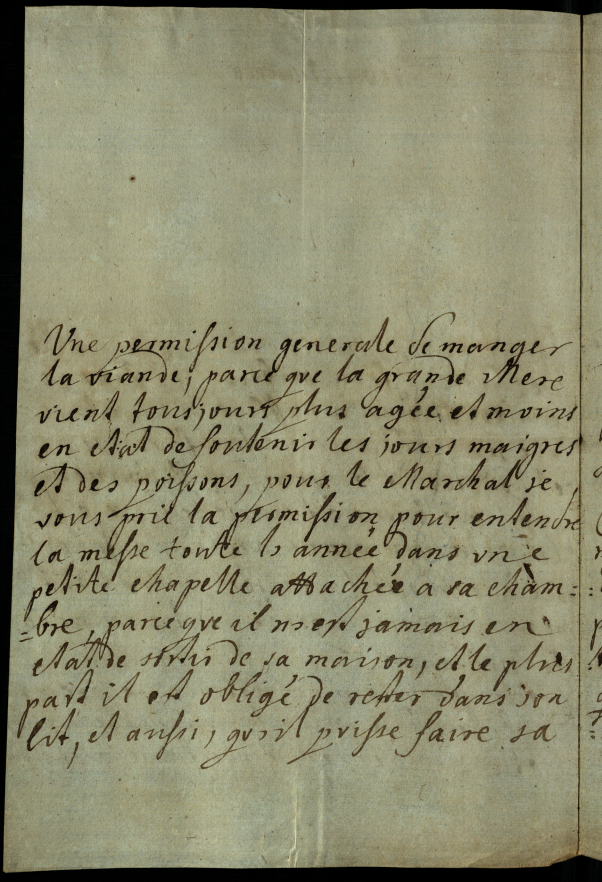 Une permission generale de manger
la viande, parce que la grande Mere
vient tousjours plus agée et moins
en etat de soutenir les jours maigres
et des poissons, pour le Marchal je
vous prie la permission pour entendre
la messe toute l'année dans une
petite chapelle attachée a sa cham=
=bre, parce que il n'est jamais en
etat de sortir de sa maison, et le plus
part il est obligé de rester dans son
lit, et aussi, qu'il puisse faire sa